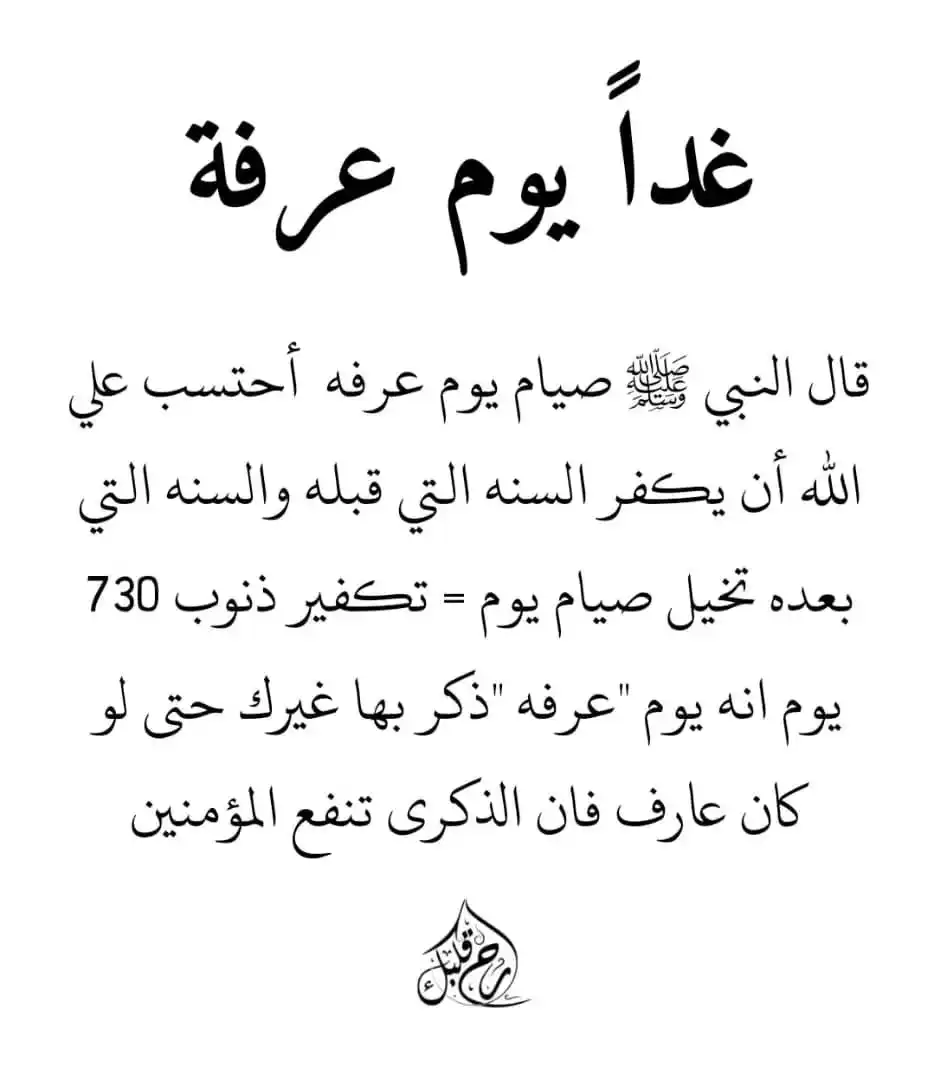 غداً يوم عرفة
قال النبي ﷺ صيام يوم عرفه أحتسب علي
الله أن يكفر السنه التي قبله والسنه التي
بعده تخيل صيام يوم = تكفير ذنوب 730
يوم انه يوم "عرفه "ذكر بها غيرك حتى لو
كان عارف فان الذكرى تنفع المؤمنين
ارح قلبك